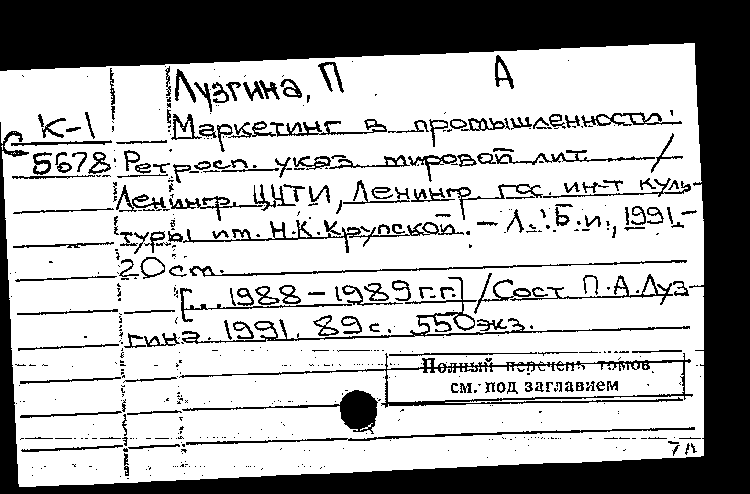 Лузгина, П А
К-1 Маркетинг в промышленности:
С 5678 Ретросп. указ. мировой лит. ... /
Ленингр. ЦНТИ, Ленингр. гос. ин-т куль-
туры им. Н.К.Крупской. - Л.: Б.и., 1991.-
20 см.
[... 1988-1989 г.г.] / Сост. П.А.Луз-
гина. 1991. 89 с. 550 экз.
Полный перечень томов
см. под заглавием
7л